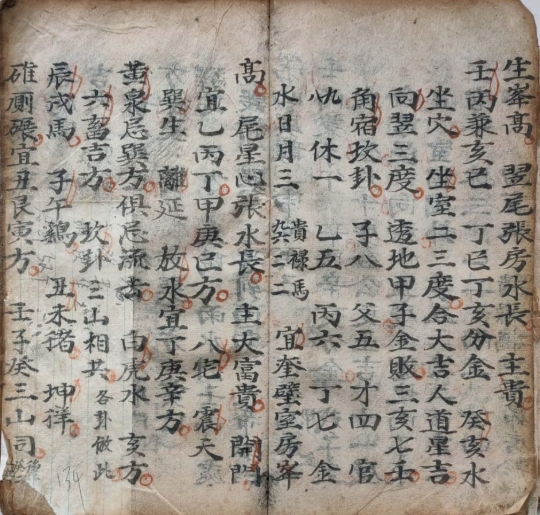 生峯高 翌尾張房水長 主貴
壬丙兼亥巳 三丁巳丁亥分金 癸亥水
坐穴 坐室二三度合大吉人道星吉
向翌三度 透地甲子金敗三亥七壬
角宿坎卦 子八 父五才四 官
九 休一 乙五 丙六 丁七 金
水日月三 貴祿馬 二二 宜奎壁室房峯
高 尾星心張水長 主大富貴 開門
宜乙丙丁甲庚巳方 八宅 震天
巽生 離延 放水宜丁庚辛方
黄泉忌巽方俱忌流去 白虎水 亥方
六畜吉方 坎卦三山相共 各卦倣此
辰戌馬 子午鷄 丑未猪 坤牂
碓厕碾宜丑艮寅方 壬子癸三山司
134